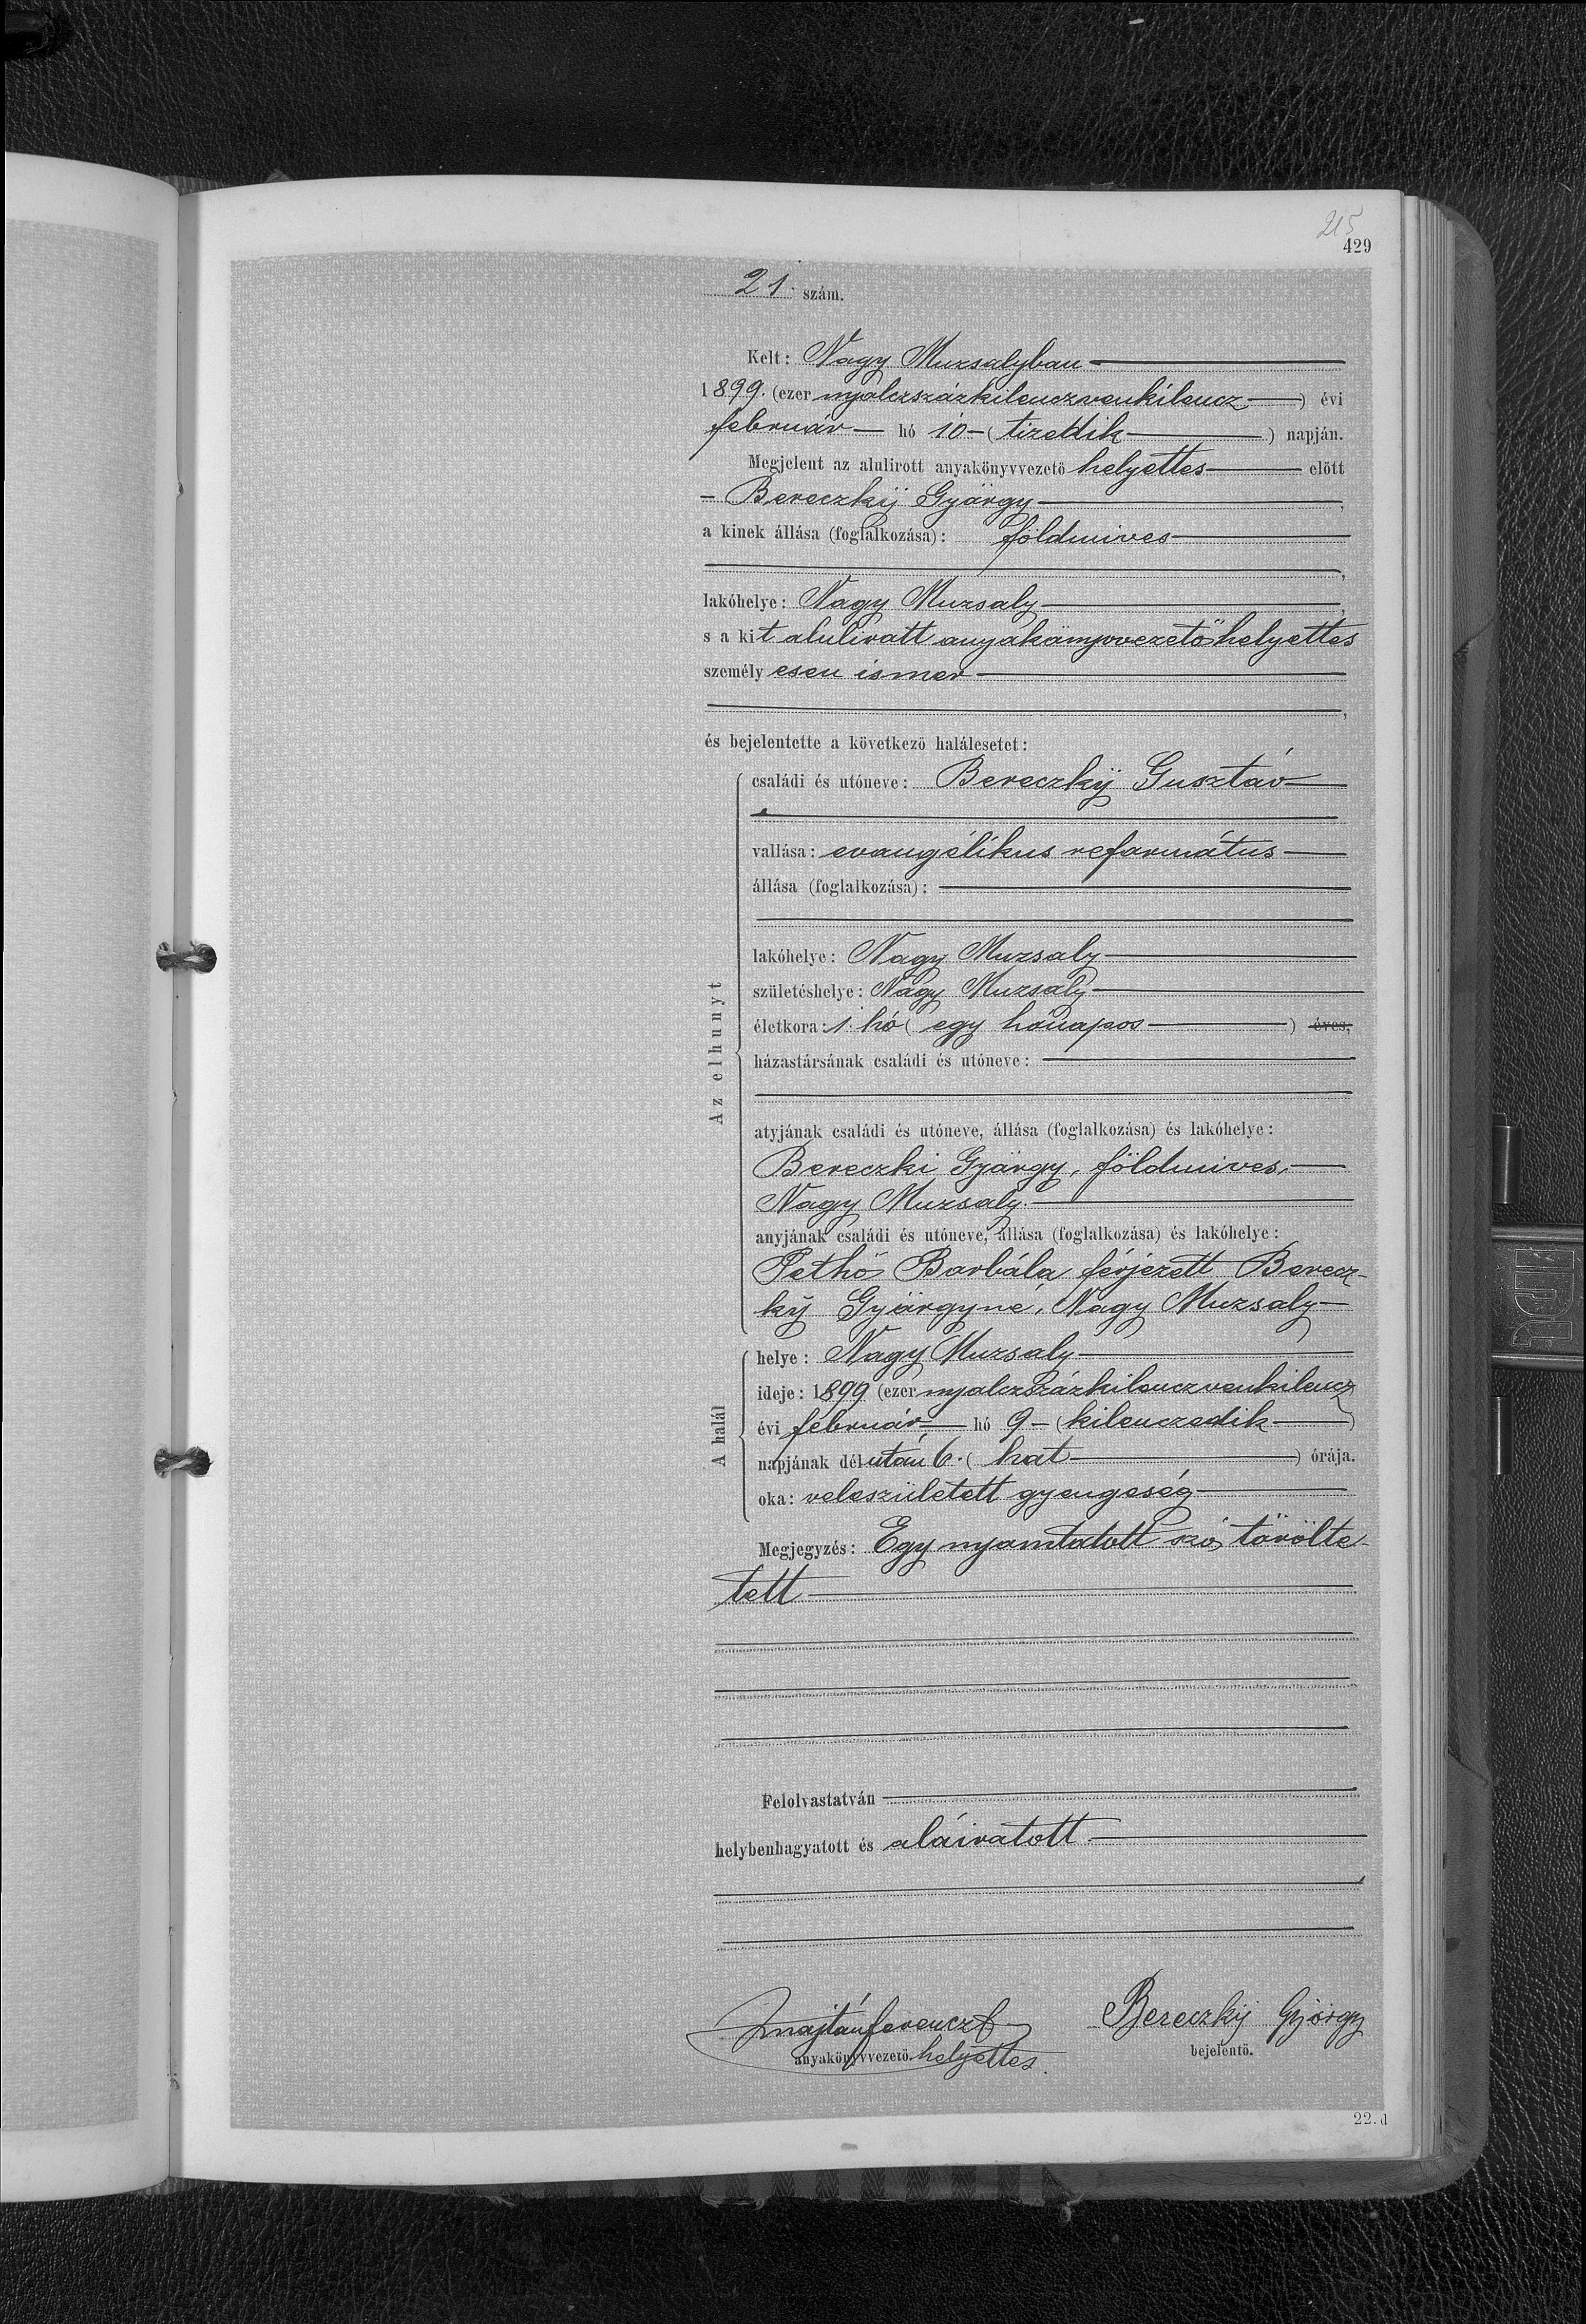 215
429
21. szám.
Kelt: Nagy Muzsalyban
1899. (ezer nyolczszázkilenczvenkilencz) évi
február hó 10 (tizedik) napján.
Megjelent az alulirott anyakönyvvezető helyettes előtt
Bereczkÿ György,
a kinek állása (foglalkozása): földmives
lakóhelye: Nagy Muzsaly,
s a kit alulirott anyakönyvvezető helyettes
személyesen ismer,
és bejelentette a következő halálesetet:
Az elhunyt
családi és utóneve: Bereczkÿ Gusztáv
vallása: evangélikus református
állása (foglalkozása):
lakóhelye: Nagy Muzsaly
születéshelye: Nagy Muzsaly
életkora: 1 hó (egy hónapos) éves,
házastársának családi és utóneve:
atyjának családi és utóneve, állása (foglalkozása) és lakóhelye:
Bereczki György, földmives,
Nagy Muzsaly.
anyjának családi és utóneve, állása (foglalkozása) és lakóhelye:
Pethő Borbála férjezett Berecz-
kÿ Györgyné, Nagy Muzsaly
A halál
helye: Nagy Muzsaly
ideje: 1899 (ezer nyolczszázkilenczvenkilencz)
évi február hó 9 (kilenczedik)
napjának délután 6. (hat) órája.
oka: veleszületett gyengeség
Megjegyzés: Egy nyomtatott szó törölte-
tett
Felolvastatván
helybenhagyatott és aláiratott.
ferencz Bereczkÿ György
anyakönyvvezető helyettes. bejelentő.
22. d